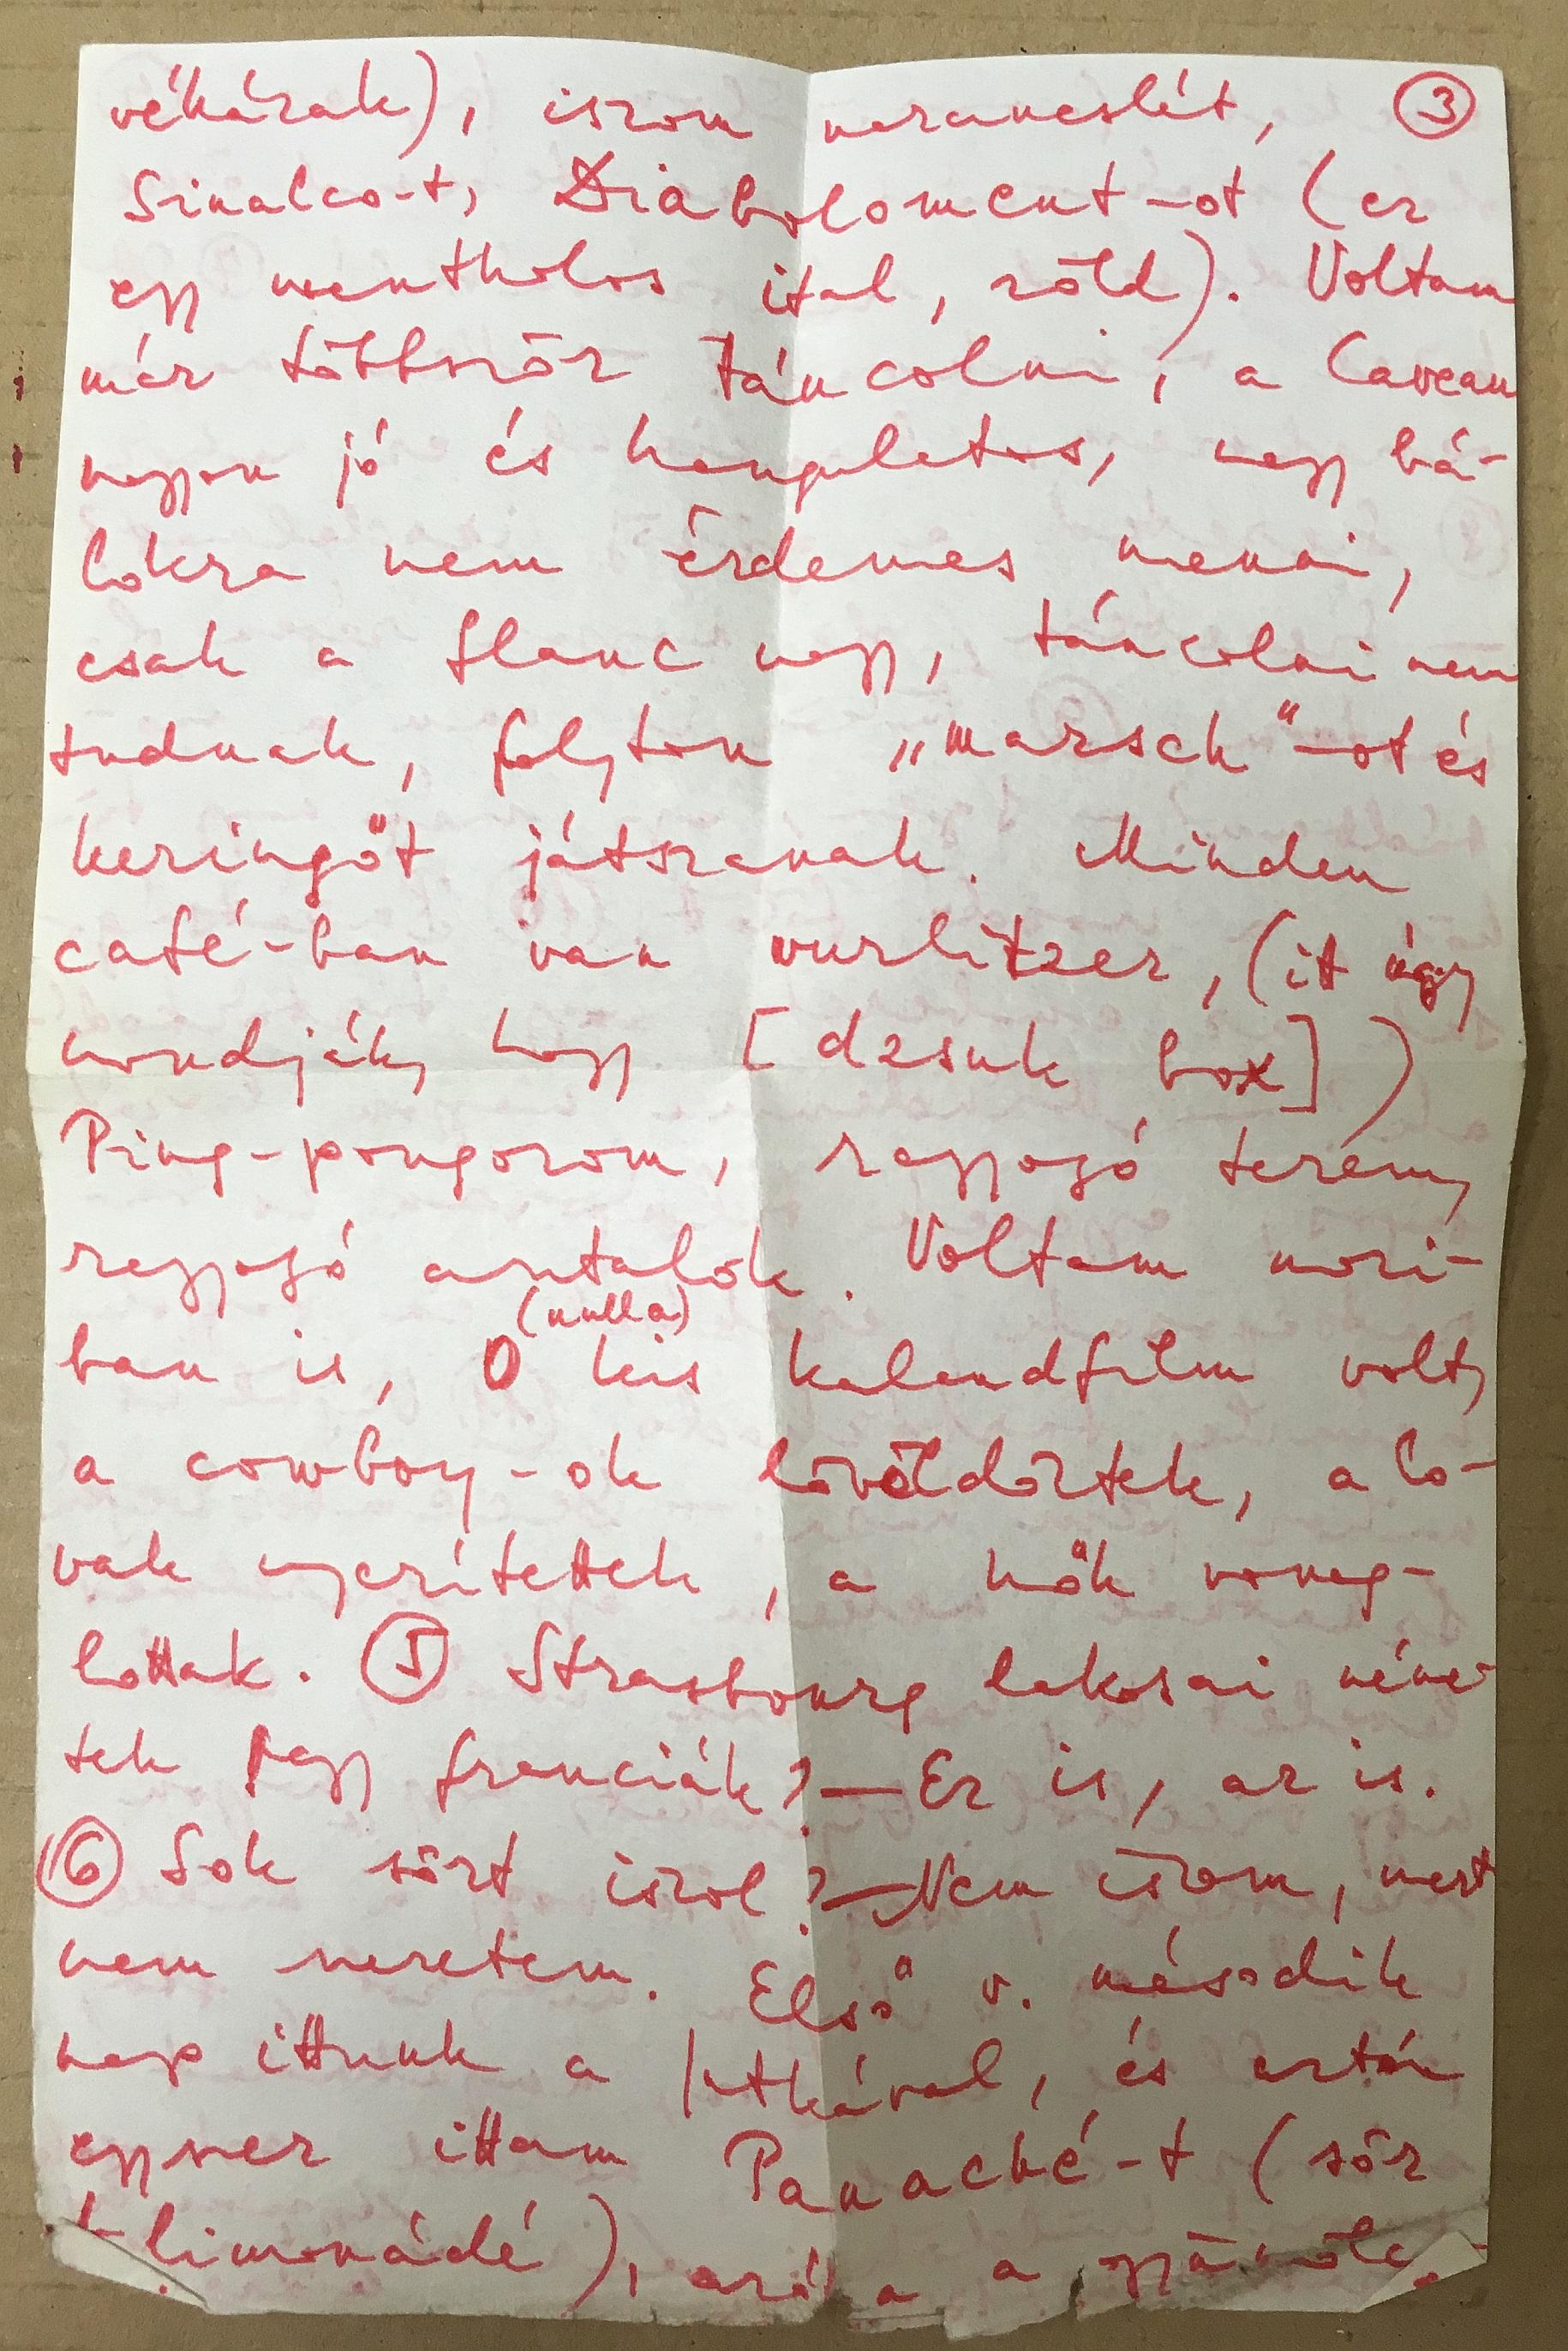 vékárak), iszom narancslét, ③
Sinalco-t, Diaboloment-ot (ez
egy mentholos ital, zöld). Voltam
már többször táncolni, a Caveau
nagyon jó és hangulatos, nagy bá-
lokra nem érdemes menni,
csak a flanc nagy, táncolni nem
tudnak, folyton „marsch"-ot és
keringőt játszanak. Minden
café-ban van wurlitzer, (itt úgy
mondják, hogy [dzsuk box])
Ping-pongozom, ragyogó terem,
ragyogó asztalok. Voltam mozi-
ban is, 0 (nulla) kis kalandfilm volt,
a cowboy-ok lövöldöztek, a lo-
vak nyerítettek, a nők vonag-
lottak. ⑤ Strasbourg lakosai néme-
tek vagy franciák? — Ez is, az is.
⑥ Sok sört iszol? — Nem iszom, mert
nem szeretem. Első v. második
nap ittunk a Jutkával, és aztán
egyszer ittam Panaché-t (sör
+ limonádé), azóta a gyümölcs-